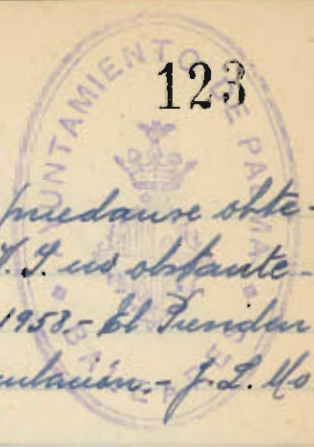 123
AYUNTAMIENTO DE PALMA
BALEARES
puedanse obte-
V. S. no obstante-
1958.- El Presiden
culación.- J. L. Mo